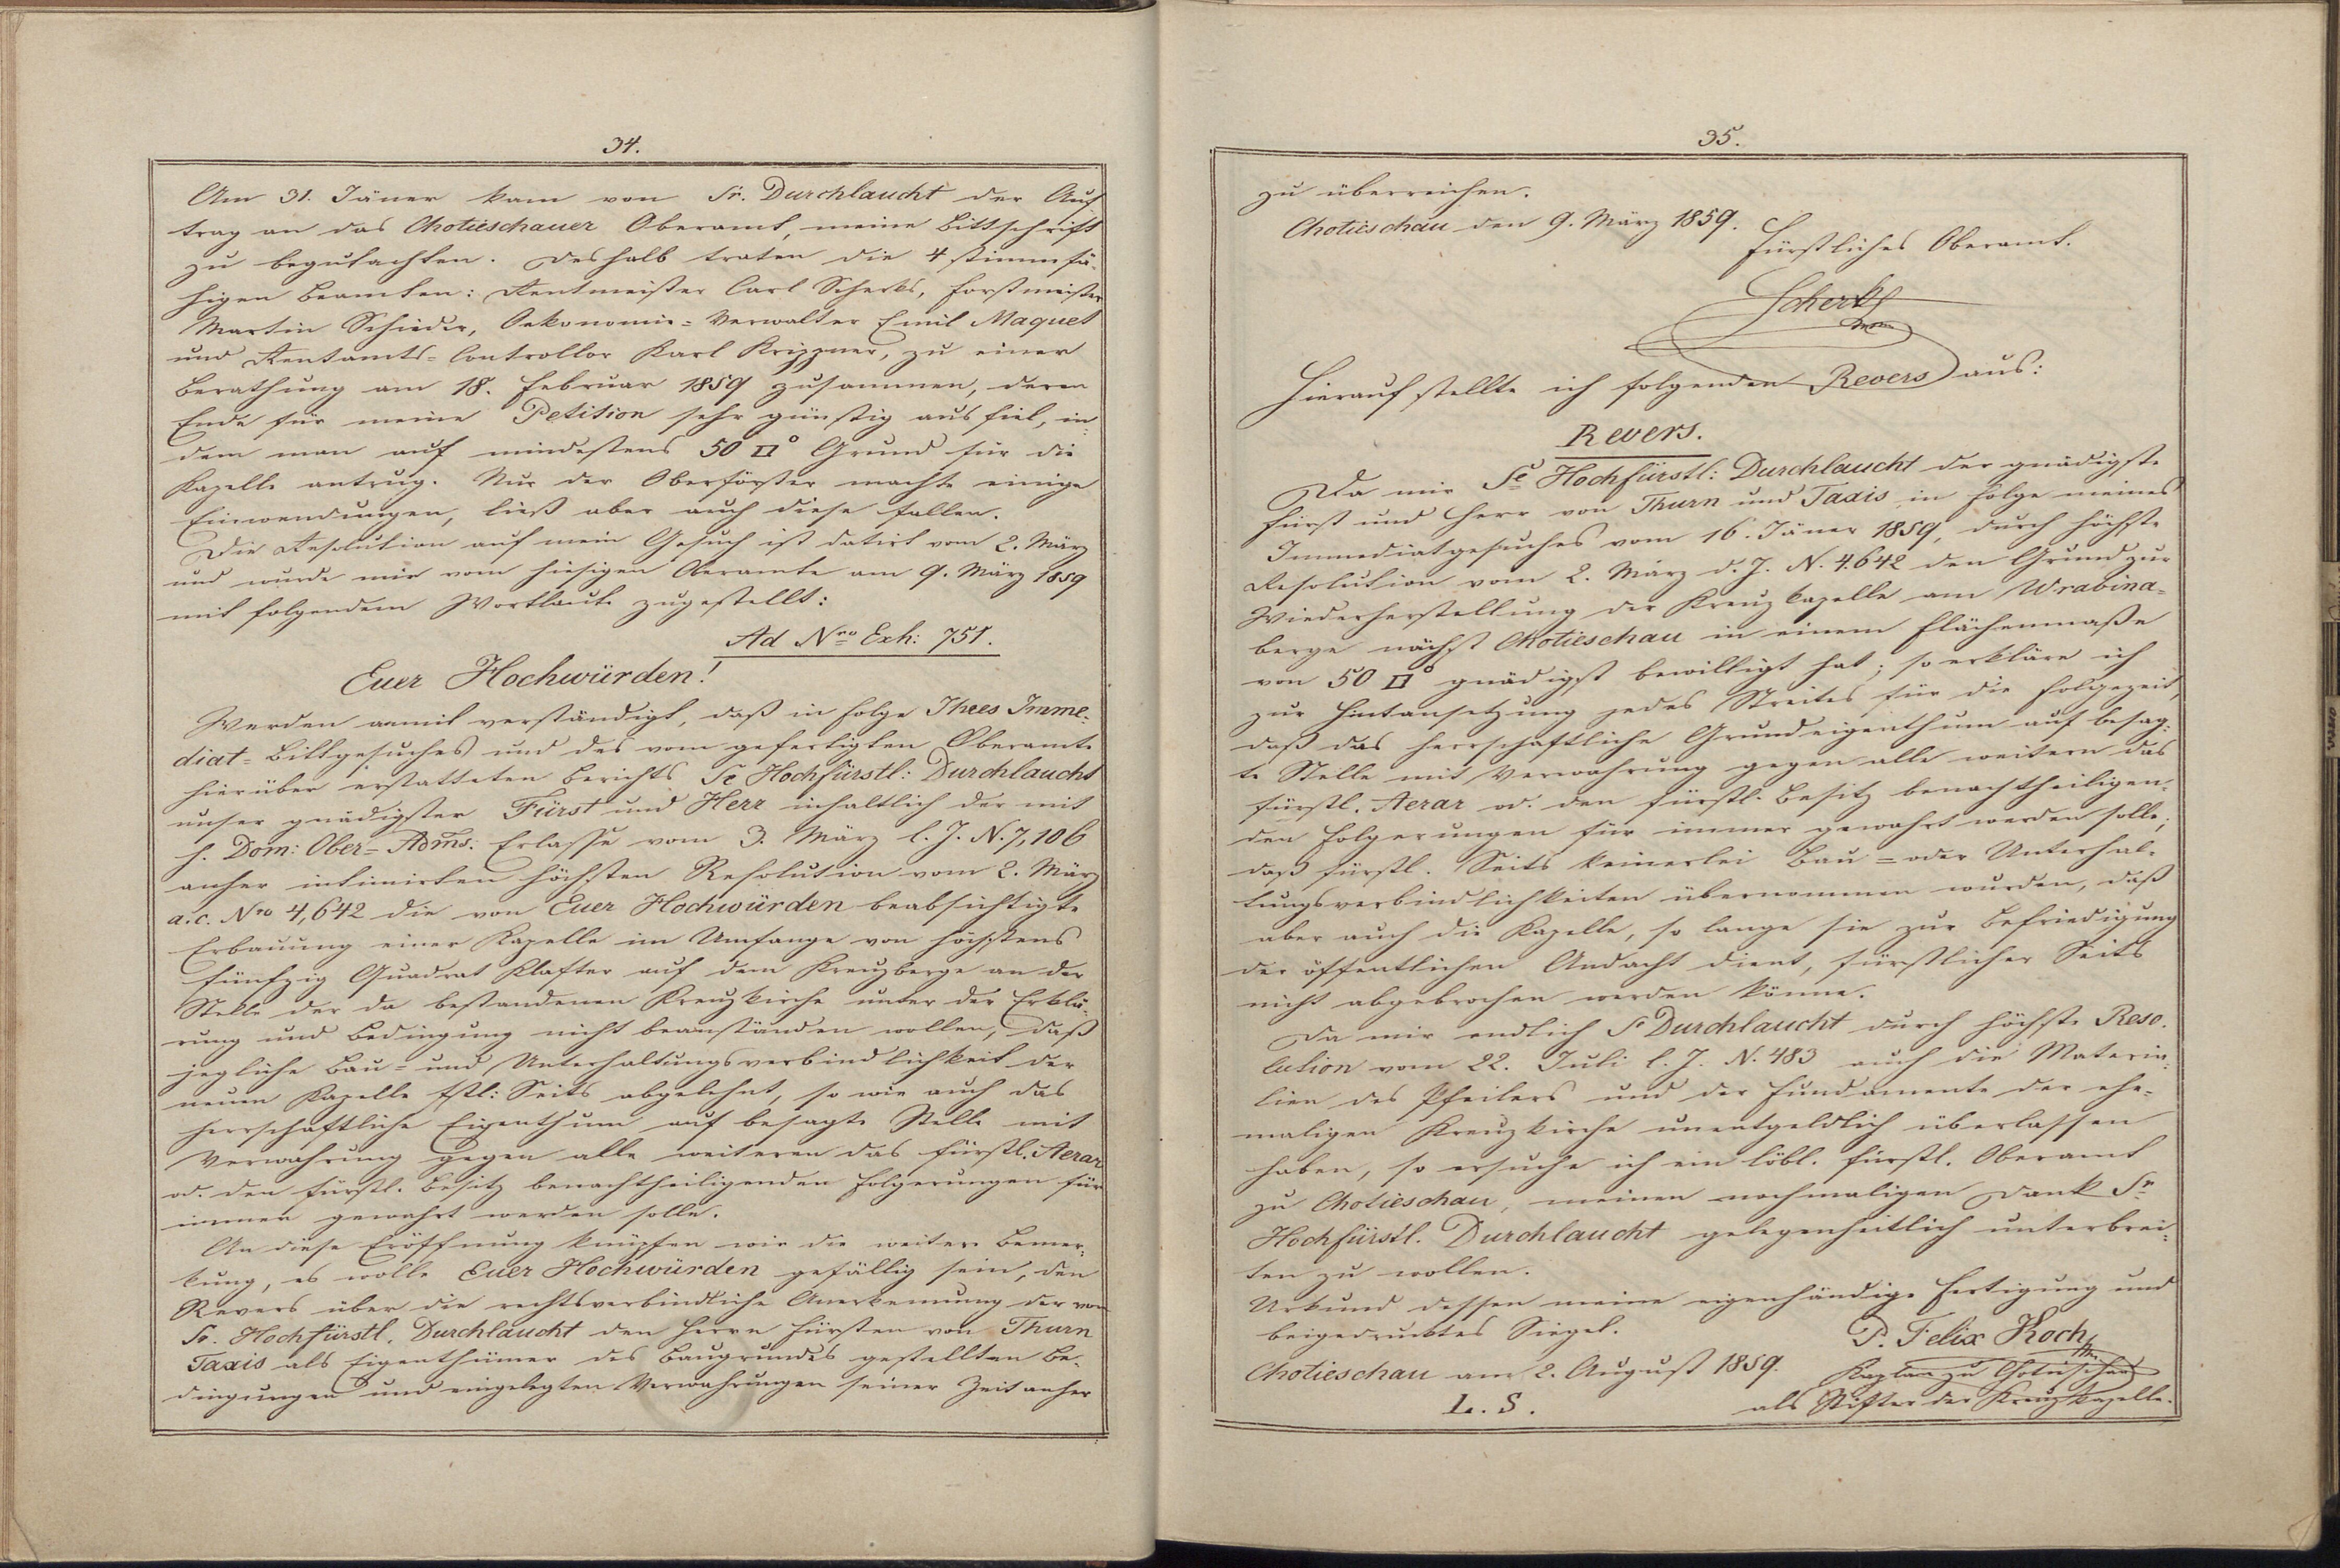 34.
Am 31. Jäner kam von Sr. Durchlaucht der Auf
trag an das Chotieschauer Oberamt, meine Bittschrift
zu begutachten. Deshalb traten die 4 stimmfä-
higen Beamten: Rentmeister Carl Scherks, Forstmeister
Martin Schieder, Oekonomie-Verwalter Emil Maquet
und Rentamts-Controllor Karl Krippner, zu einer
Berathung am 18. Februar 1859 zusammen, deren
Ende für meine Petition sehr günstig ausfiel, in-
dem man auf mindestens 50 □° Grund für die
Kapelle antrug. Nur der Oberförster machte einige
Einwendungen, ließ aber auch diese fallen.
Die Resolution auf mein Gesuch ist datirt vom 2. März
und wurde mir vom hiesigen Oberamte am 9. März 1859
mit folgendem Wortlaute zugestellt:
Ad Nro Exh: 751.
Euer Hochwürden!
Werden anmit verständigt, daß in Folge Ihres Imme-
diat-Bittgesuches und des vom gefertigten Oberamte
hierüber erstatteten Berichts Se Hochfürstl: Durchlaucht
unser gnädigster Fürst und Herr inhaltlich der mit
h. Dom: Ober-Adms: Erlasse vom 3. März l. J. N. 7,106
anher intimirten höchsten Resolution vom 2. März
a. c. Nro 4,642 die von Euer Hochwürden beabsichtigte
Erbauung einer Kapelle im Umfange von höchstens
fünfzig Quadrat Klafter auf dem Kreuzberge an der
Stelle der da bestandenen Kreuzkirche unter der Erklä-
rung und Bedingung nicht beanständen wollen, daß
jegliche Bau- und Unterhaltungsverbindlichkeit der
neuen Kapelle fstl: Seits abgelehnt, so wie auch das
herrschaftliche Eigenthum auf besagte Stelle mit
Verwahrung gegen alle weiteren das fürstl. Aerar
od. den fürstl. Besitz benachtheiligenden Folgerungen für
immer gewahrt werden solle.
An diese Eröffnung knüpfen wir die weitere Bemer-
kung, es wolle Euer Hochwürden gefällig sein, den
Revers über die rechtsverbindliche Anerkennung der von
Sr. Hochfürstl. Durchlaucht den Herrn Fürsten von Thurn
Taxis als Eigenthümer des Baugrundes gestellten Be-
dingungen und eingelegten Verwahrungen seiner Zeit anher
35.
zu überreichen.
Chotieschau den 9. März 1859.
Fürstliches Oberamt.
Scherks
Hierauf stellte ich folgenden Revers aus:
Revers.
Da mir Se Hochfürstl: Durchlaucht der gnädigste
Fürst und Herr von Thurn und Taxis in Folge meines
Immediatgesuches vom 16. Jäner 1859, durch höchste
Resolution vom 2. März d. J. N. 4.642 den Grund zur
Wiederherstellung der Kreuzkapelle am Wrabina-
berge nächst Chotieschau in einem Flächenmaße
von 50 □° gnädigst bewilligt hat; so erkläre ich
zur Hintansetzung jedes Streites für die Folgezeit,
daß das herrschaftliche Grundeigenthum auf besag-
te Stelle mit Verwahrung gegen alle weitern das
fürstl. Aerar od. den fürstl. Besitz benachtheiligen-
den Folgerungen für immer gewahrt werden solle;
daß fürstl. Seits keinerlei Bau- oder Unterhal-
tungsverbindlichkeiten übernommen wurden, daß
aber auch die Kapelle, so lange sie zur Befriedigung
der öffentlichen Andacht dient, fürstlicher Seits
nicht abgebrochen werden könne.
Da mir endlich Se Durchlaucht durch höchste Reso-
lution vom 22. Juli l. J. N. 483 auch die Materia-
lien des Pfeilers und der Fundamente der ehe-
maligen Kreuzkirche unentgeldlich überlassen
haben, so ersuche ich ein löbl. fürstl. Oberamt
zu Chotieschau, meinen nochmaligen Dank Sr
Hochfürstl. Durchlaucht gelegenheitlich unterbrei-
ten zu wollen.
Urkund dessen meine eigenhändige Fertigung und
beigedrucktes Siegel.
P. Felix Koch
Chotieschau am 2. August 1859.
Kaplan zu Chotieschau
L. S.
als Stifter der Kreuzkapelle.